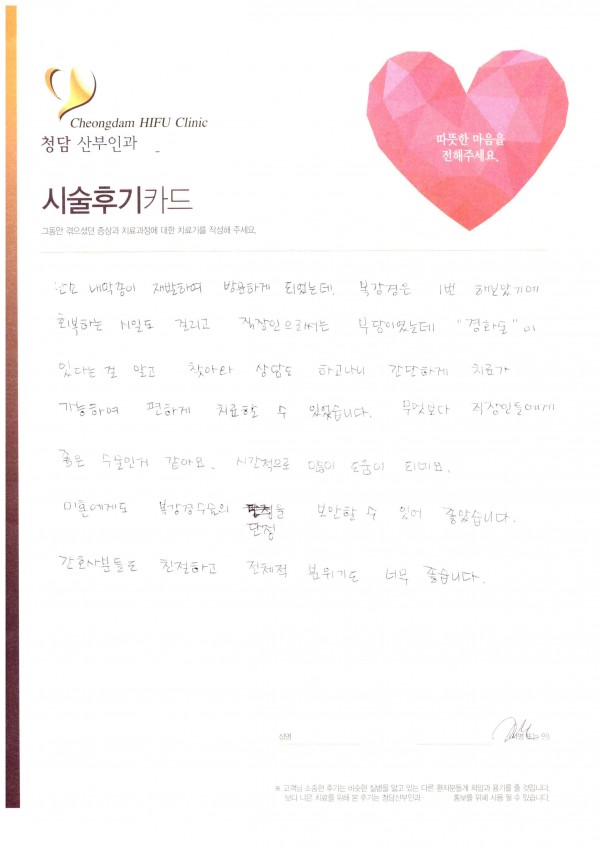 Cheongdam HIFU Clinic
청담 산부인과
따뜻한 마음을
전해주세요.
시술후기카드
그동안 겪으셨던 증상과 치료과정에 대한 치료기를 작성해 주세요.
내막종이 재발하여 방문하게 되었는데, 복강경은 1번 해보았기에
회복하는 시일도 걸리고 직장인으로써는 부담이였는데 "경화술"이
있다는 걸 알고 찾아와 상담도 하고나니 간단하게 치료가
가능하여 편하게 치료할 수 있었습니다. 무엇보다 직장인들에게
좋은 수술인거 같아요. 시간적으로 많이 도움이 되네요.
미혼에게도 복강경수술의 단점을 보안할 수 있어 좋았습니다.
간호사분들도 친절하고 전체적 분위기도 너무 좋습니다.
성명
※ 고객님 소중한 후기는 비슷한 질병을 앓고 있는 다른 환자분들께 희망과 용기를 줄 것입니다.
보다 나은 치료를 위해 본 후기는 청담산부인과 홍보를 위해 사용 될 수 있습니다.